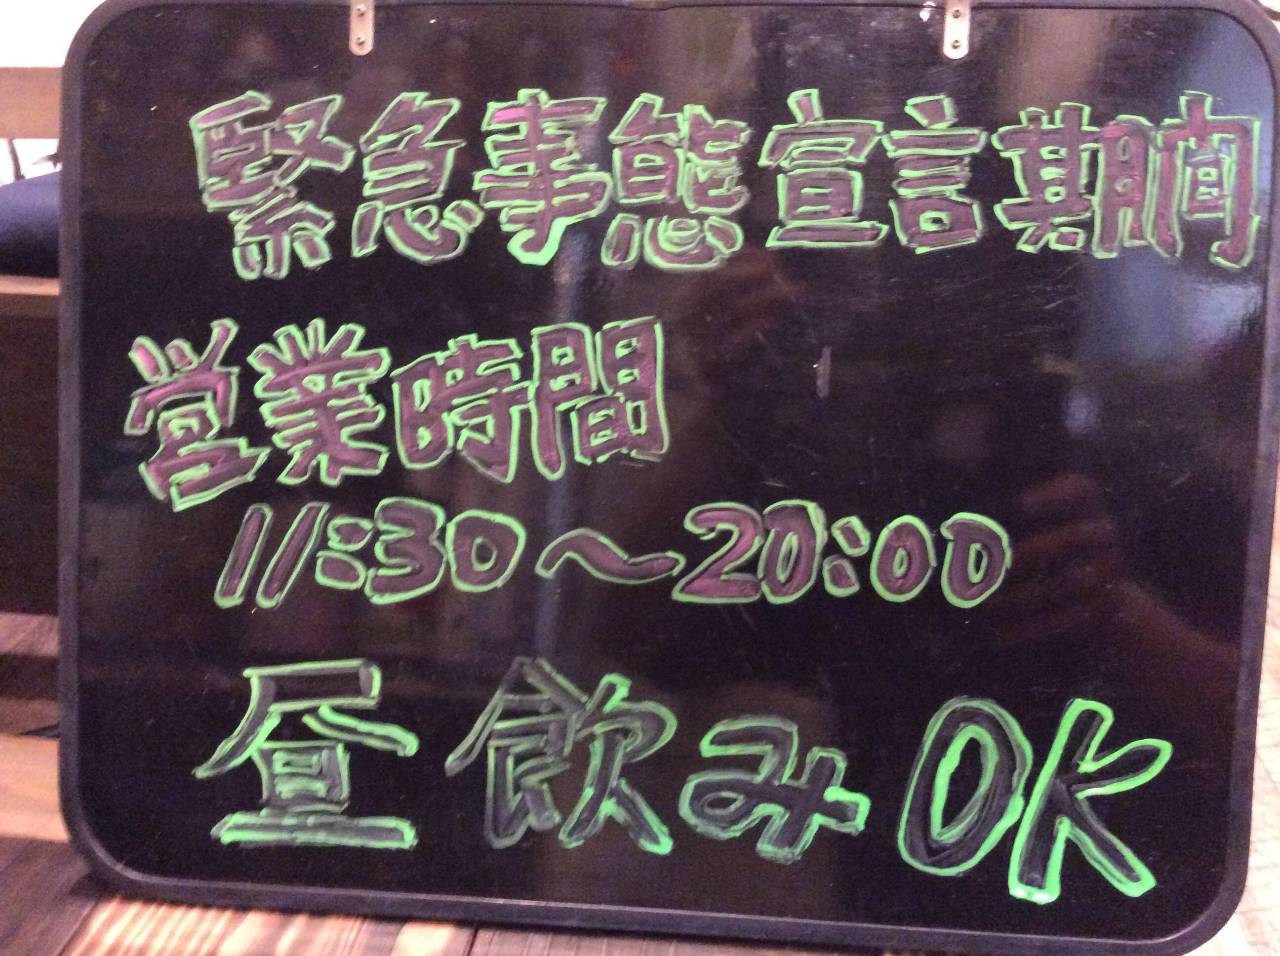 緊急事態宣言期间
営業時間
11:30〜20:00
昼飲みOK